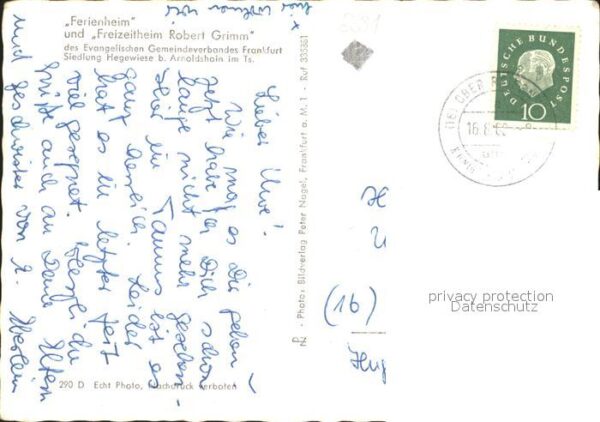 „Ferienheim"
und „Freizeitheim Robert Grimm"
des Evangelischen Gemeindeverbandes Frankfurt
Siedlung Hegewiese b. Arnoldshain im Ts.
hier wohnen wir
x
Lieber Uwe!
Wie mag es Dir gehen –
Jetzt habe ich Dich schon
lange nicht mehr gesehen.
Hier im Taunus ist es
ganz herrlich. Leider
hat es in letzter Zeit
viel geregnet. Herzliche
Grüße auch an Deine Eltern
und Geschwister von
290 D Echt Photo, Nachdruck verboten
D - Photor Bildverlag Peter Nagel, Frankfurt a. M. 1 - Ruf 335381
DEUTSCHE BUNDESPOST
10
16.8.60
(16)
privacy protection
Datenschutz